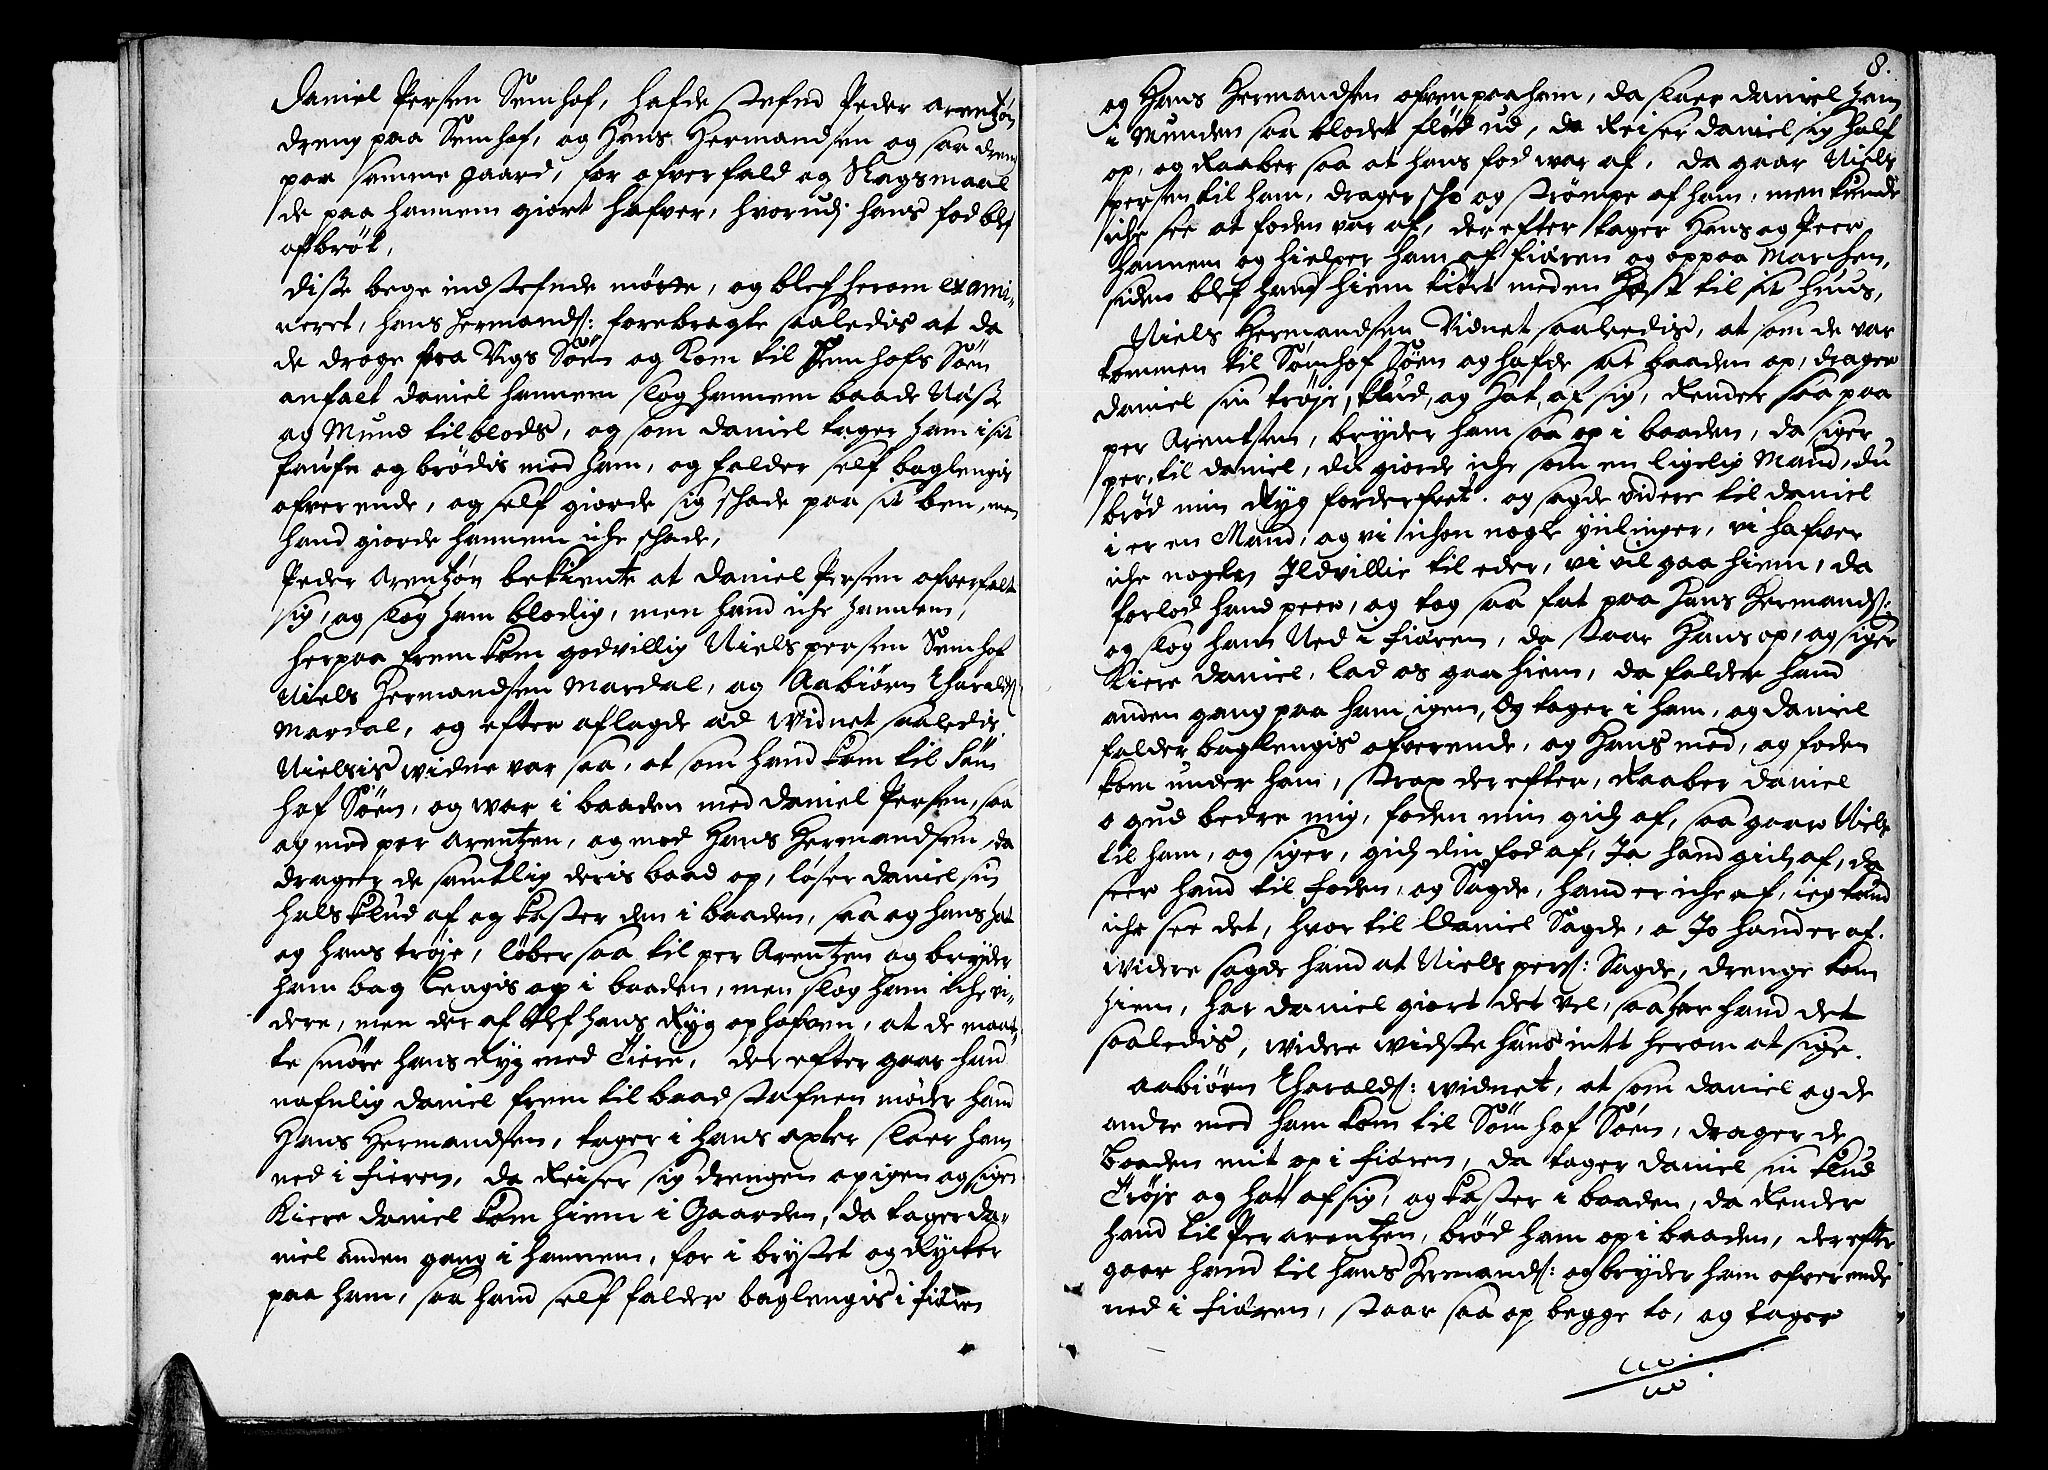 Daniel Persen Semhof, hafde stefnd Peder Arentzøn
dreng paa Semhof, og Hans Hermandsen og saa dreng
paa samme gaard, for ofverfald og Slagsmaal
de paa hannem giort hafver, hvorudj hans fod blef
afbrøt,
disse bege indstefnde møtte, og blef herom exami-
neret, hans Hermands: forebragte saaledis at da
de droge fra Vigs Søen og kom til Semhofs Søen
anfalt Daniel hannem slog hannem baade Næsse
og Mund til blods, og som Daniel tager ham i sit
faufn og brødis med ham, og falder self baglengis
ofverende, og self giorde sig schade paa sit ben, men
hand giorde hannem iche schade,
Peder Arentzøn bekiente at Daniel Persen ofverfalt
sig, og slog ham blodig, men hand iche hannem,
herpaa fremkom godvillig Niels persen Semhof
Niels Hermandsen Mardal, og Aabiørn Haralds:
Mardal, og efter aflagde æd widnet saaledis
Nielsis widne var saa, at som hand kom til Søm
hof Søen, og war i baaden med Daniel Persen, saa
og med per Arentzen, og med Hans Hermandsen, da
drager de samtlig deris baad op, løser Daniel sin
halsklud af og kaster den i baaden, saa og hans hat
og hans trøje, løber saa til per Arentzen og bryder
ham bag lengis op i baaden, men slog ham iche vi-
dere, men der af blef hans Ryg ophofven, at de maat-
te smøre hans Ryg med Tiere, der efter gaar hand
nafnlig Daniel frem til baadstafnen møder hand
Hans Hermandsen, tager i hans axler slaer ham
ned i fieren, da Reiser sig drengen op igen og siger
Kiere Daniel kom hiem i Gaarden, da tager Da-
niel anden gang i hannem, for i brystet og Rycker
paa ham, saa hand self falder baglengis i fiæren
8.
og Hans Hermandsen ofven paa ham, da slaer Daniel ham
i Munden saa blodet flød ud, da Reiser Daniel sig half
op, og Raaber saa at hans fod war af, da gaar Niels
persen til ham, drager scho og strømpe af ham, men kunde
iche see at foden var af, der efter tager Hans og Peer
hannem og hielper ham af fiæren og op paa Marchen,
siden blef hand hiem kiørt med en Hest til sit huus,
Niels Hermandsen Vidnet saaledis, at som de var
kommen til Sømhof Søen og hafde sat baaden op, drager
Daniel sin trøje, klud, og Hat, af sig, Render saa paa
per Arentsen, bryder ham saa op i baaden, da siger
per, til Daniel, du giorde iche som en ligelig Mand, du
brød min Ryg forderfvet. og sagde videre til Daniel
i er en Mand, og vi ichon nogle ynlinger, vi hafver
iche nogen Ildvillie til eder, vi vil gaa hiem, da
forlod hand peer, og tog saa fat paa Hans Hermands:
og slog ham Ned i fiæren, da staar Hans op, og siger
Kiere Daniel, lad os gaa hiem, da falder hand
anden gang paa ham igen, Og tager i ham, og Daniel
falder baglengis ofverende, og Hans med, og foden
kom under ham, strax der efter, Raaber Daniel
o gud bedre mig, foden min gich af, saa gaar Niels
til ham, og siger, gich din fod af, Ja hand gich af, da
seer hand til foden, og Sagde, hand er iche af, ieg kand
iche see det, hvor til Daniel Sagde, o Jo hand er af.
widere sagde hand at Niels pers: Sagde, drenge kom
hiem, har Daniel giort det vel, saa har hand det
saaledis, widere widste hans intet herom at sige.
Aabiørn Haralds: widnet, at som Daniel og de
andre med ham kom til Sømhof Søen, drager de
baaden mit op i fiæren, da tager Daniel sin klud
Trøje og hat af sig, og kaster i baaden, da Render
hand til Per arentzen, brød ham op i baaden, der efter
gaar hand til Hans Hermands: og bryder ham ofverende
ned i fiæren, staar saa op begge to, og tager